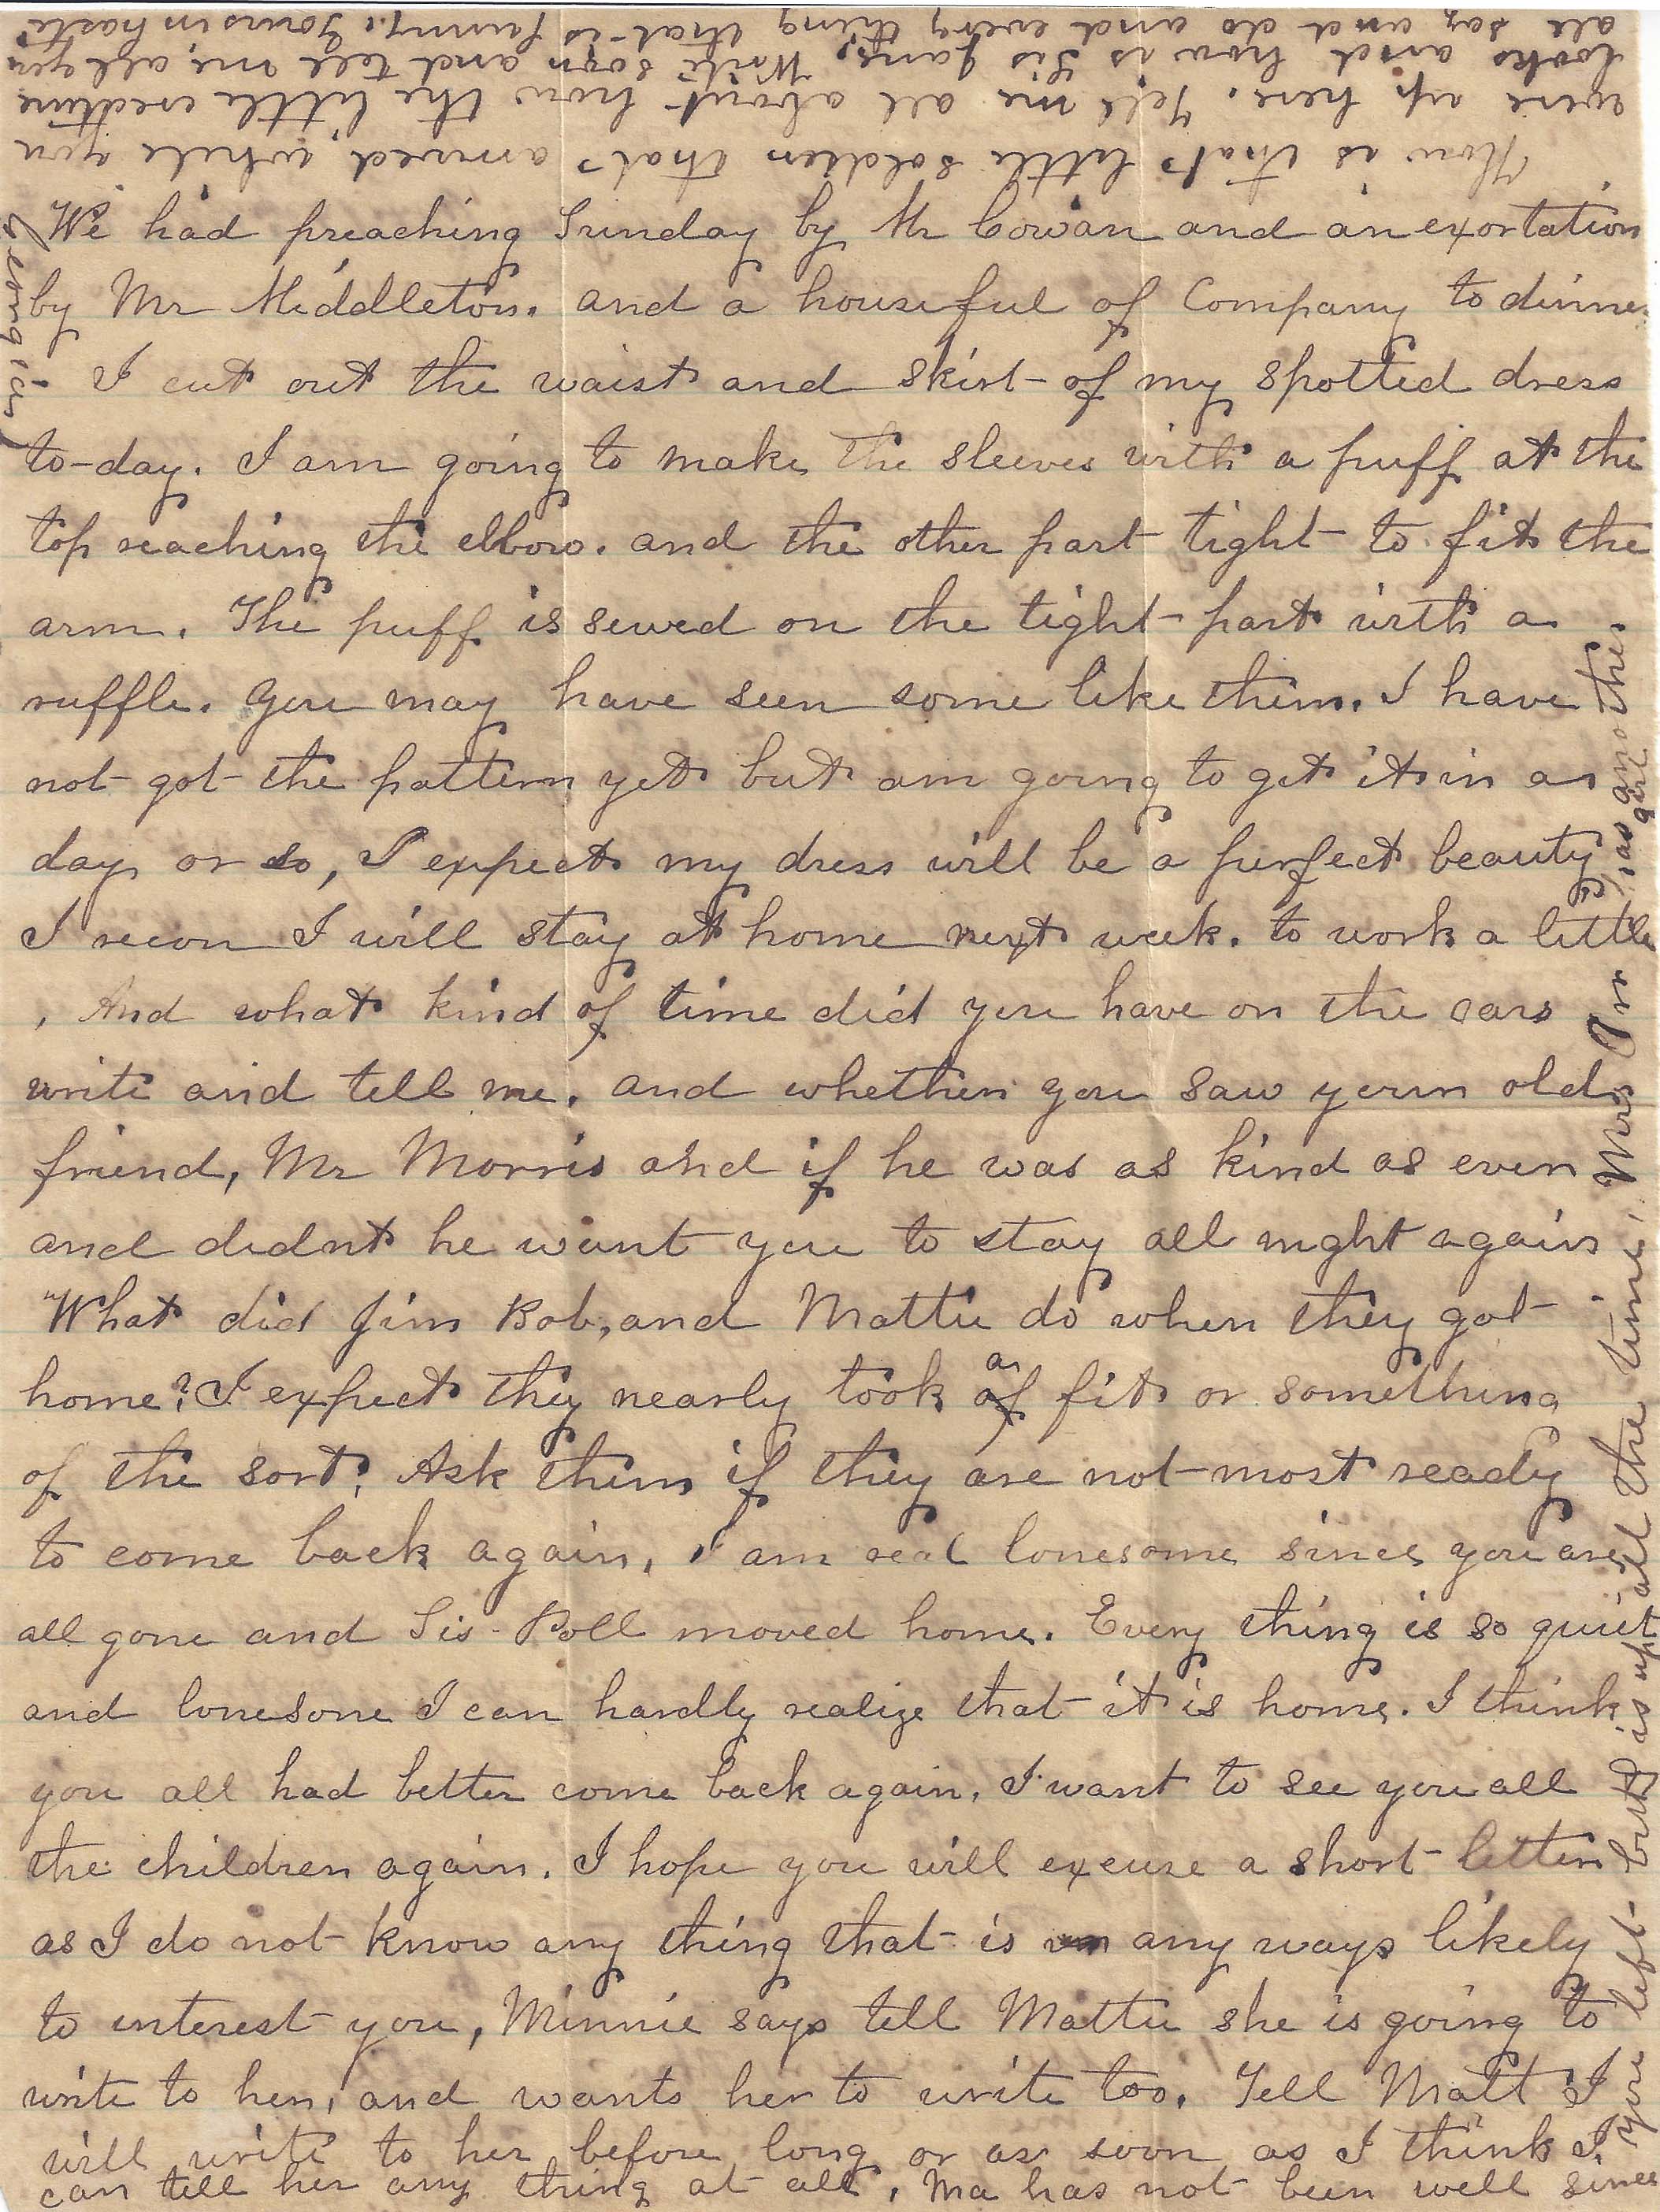 We had preaching Sunday by Mr Cowan and an exortation
by Mr Middleton. and a houseful of Company to dinner
. I cut out the waist and skirt of my spotted dress
to-day. I am going to make the sleeves with a puff at the
top reaching the elbow. and the other part tight to fit the
arm. The puff is sewed on the tight part with a
ruffle. you may have seen some like them. I have
not got the pattern yet but am going to get it in a
day or so, I expect my dress will be a purfect beauty
I recon I will stay at home next week. to work a little
, And what kind of time did you have on the cars
write and tell me. and whether you saw your old
friend, Mr Morris and if he was as kind as ever
and didnt he want you to stay all night again
"What did Jim Bob, and Mattie do when they got
home? I expect they nearly took a fit or something
of the sort? Ask them if they are not most ready
to come back again, I am real lonesome since you are
all gone and Sis Poll moved home. Every thing is so quiet
and lonesome I can hardly realize that it is home. I think
you all had better come back again. I want to see you all
the children again. I hope you will excuse a short letter
as I do not know any thing that is any ways likely
to interest you, Minnie says tell Mattie she is going to
write to her, and wants her to write too. Tell Matt I
will write to her before long or as soon as I think I
can tell her any thing at all, Ma has not been well since
you left but is up all the time, Mrs Orr has another
girl
How is that little soldier that arrived while you
were up here. Tell me all about how the little creature
looks and how is Sis Jane. Write soon and tell me all you
all say and do and every thing that is funny. Yours in haste